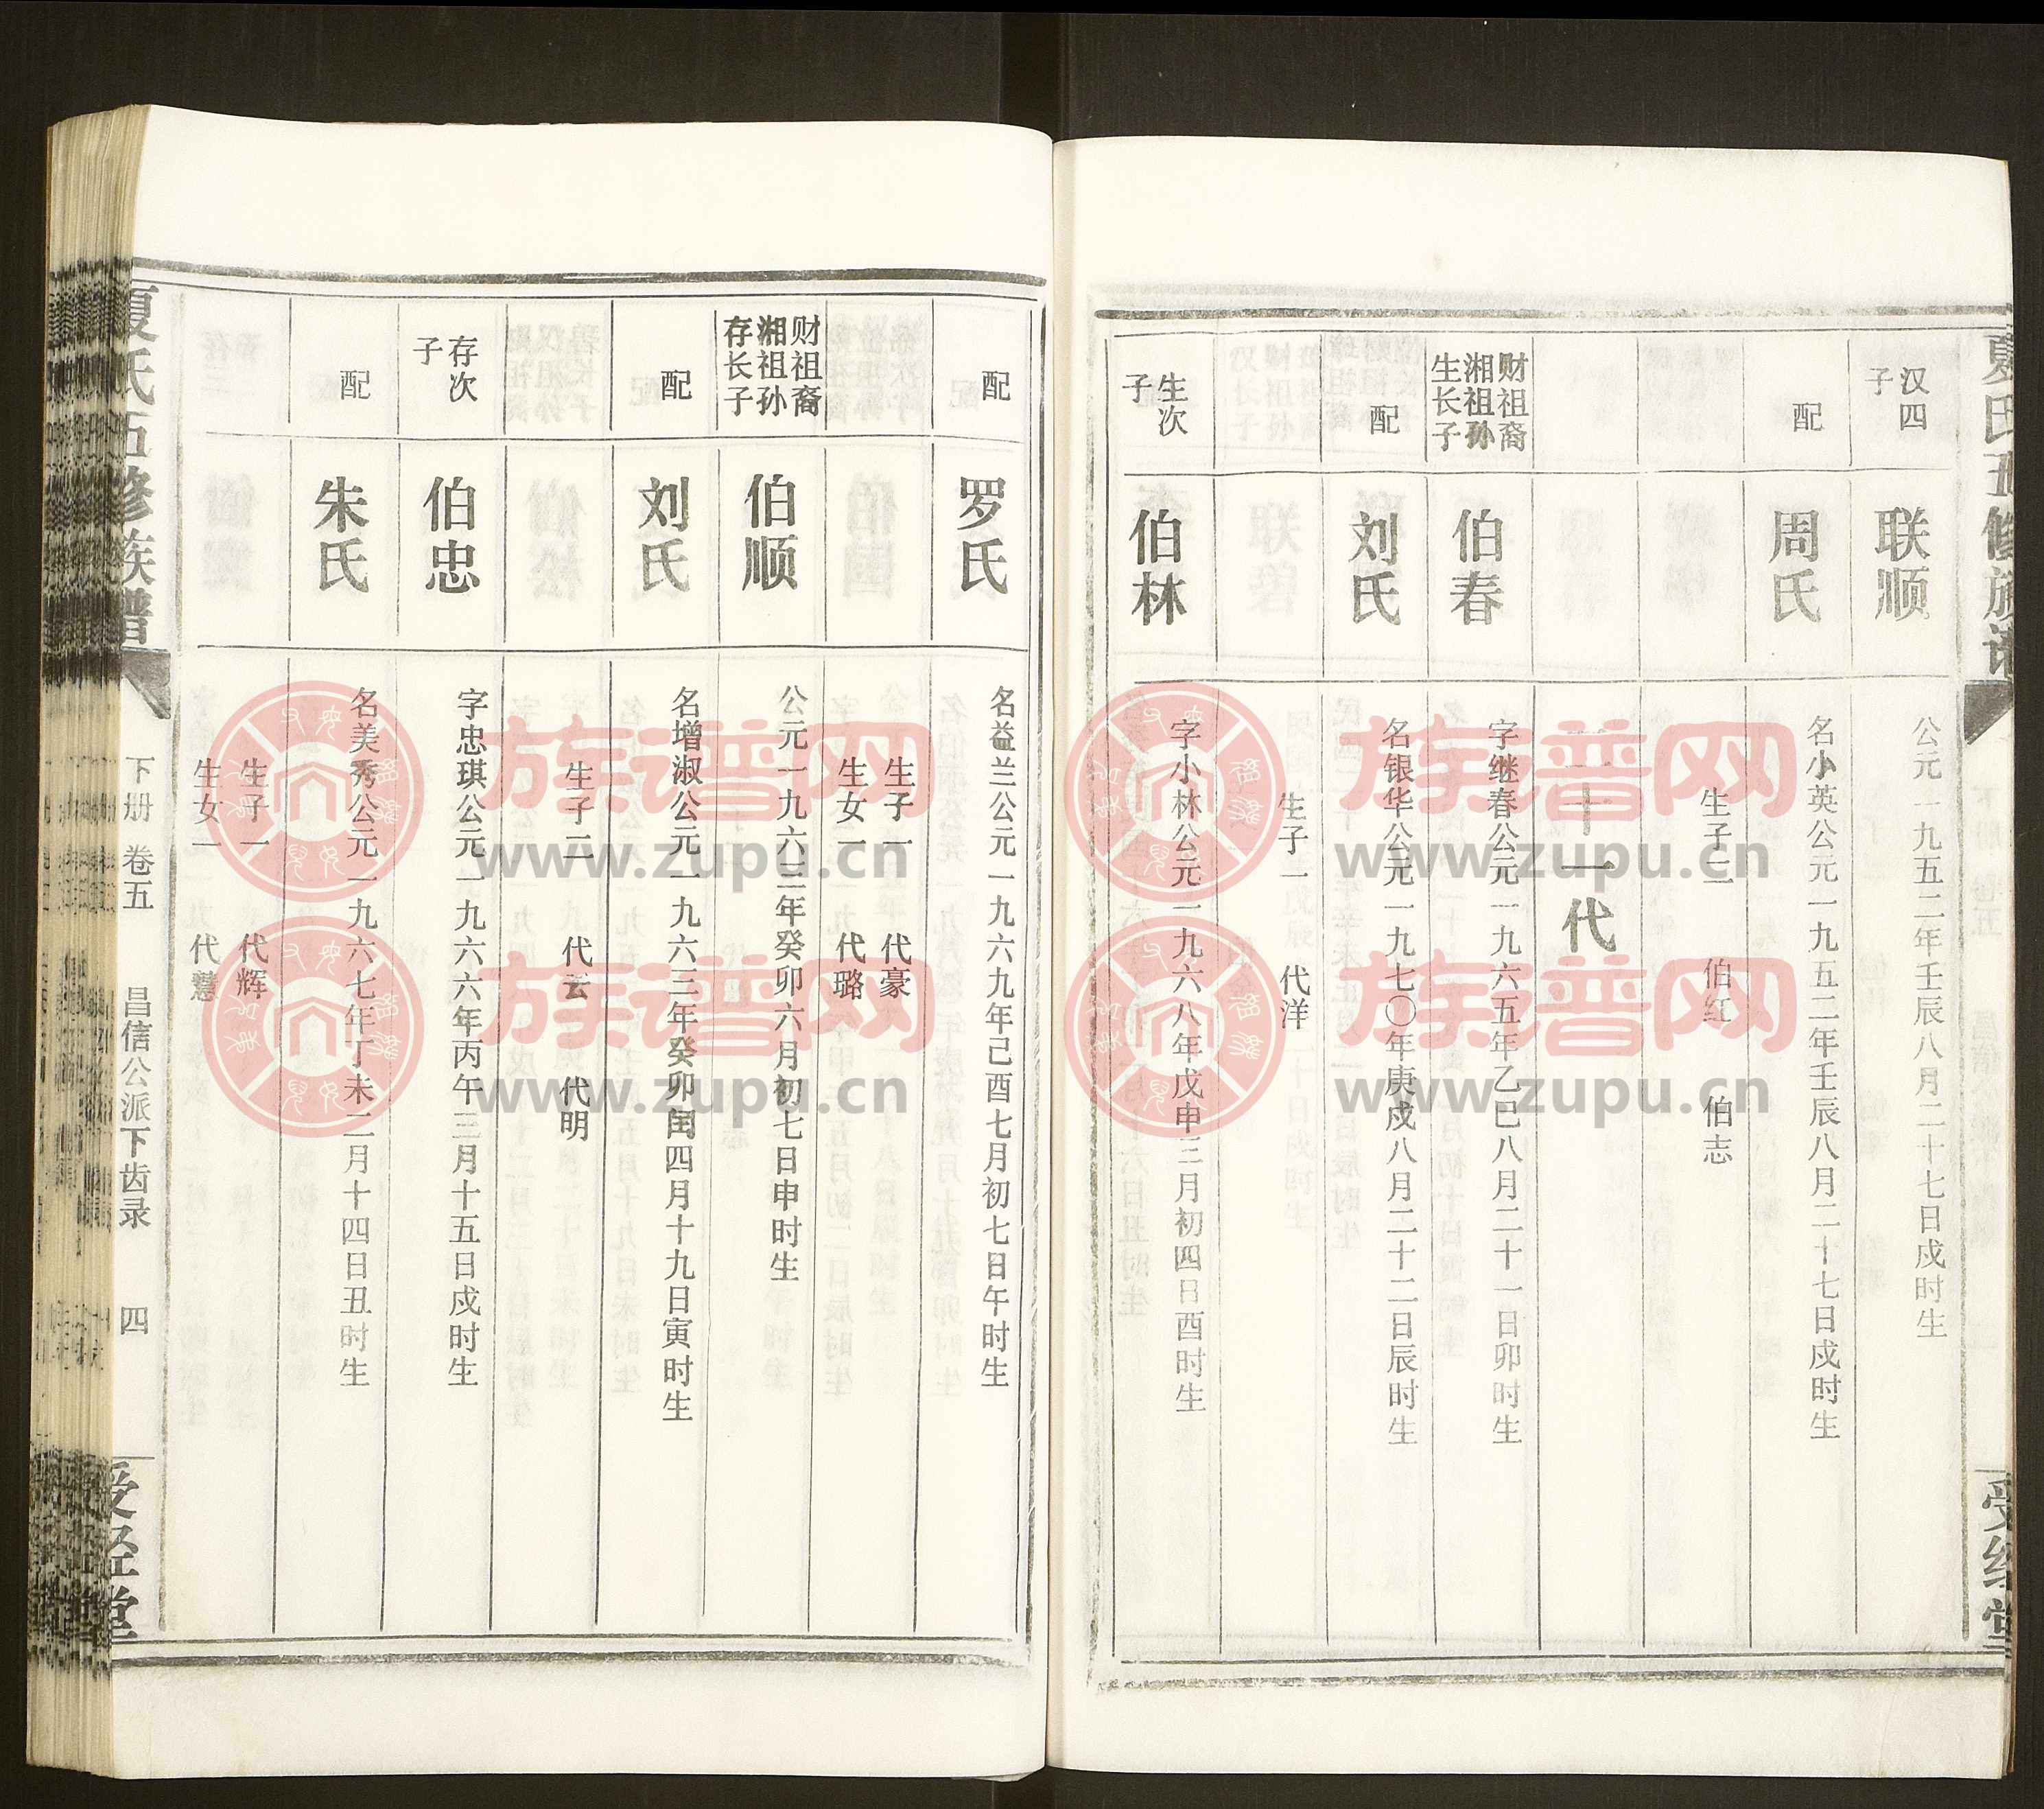 夏氏五修族谱
受经堂
汉四子
联顺
公元一九五二年壬辰八月二十七日戌时生
配
周氏
名小英公元一九五二年壬辰八月二十七日戌时生
生子二 伯红 伯志
二十一代
财祖裔
湘祖孙
生长子
伯春
字继春公元一九六五年乙巳八月二十一日卯时生
配
刘氏
名银华公元一九七〇年庚戌八月二十二日辰时生
生子一 代洋
生次子
伯林
字小林公元一九六八年戊申三月初四日酉时生
配
罗氏
名益兰公元一九六九年己酉七月初七日午时生
生子一 代豪
生女一 代璐
财祖裔
湘祖孙
存长子
伯顺
公元一九六三年癸卯六月初七日申时生
配
刘氏
名增淑公元一九六三年癸卯闰四月十九日寅时生
生子二 代云 代明
存次子
伯忠
字忠琪公元一九六六年丙午三月十五日戌时生
配
朱氏
名美秀公元一九六七年丁未二月十四日丑时生
生子一 代辉
生女一 代慧
夏氏五修族谱
下册 卷五 昌信公派下齿录 四
受经堂
族谱网
www.zupu.cn
族谱网
www.zupu.cn
族谱网
www.zupu.cn
族谱网
www.zupu.cn